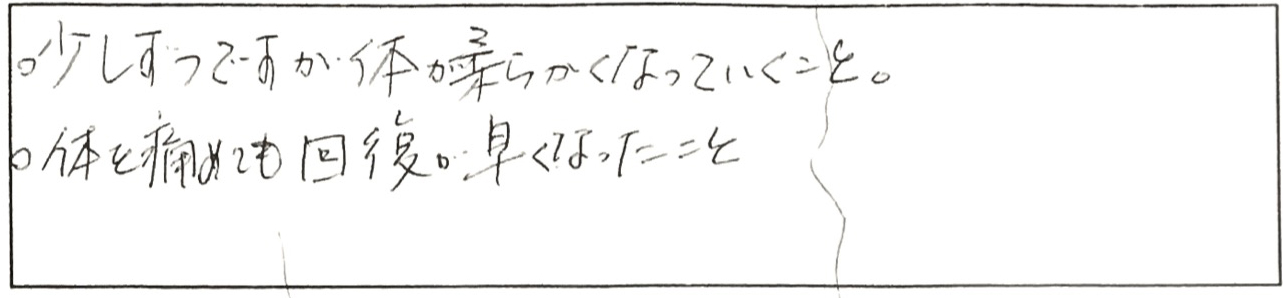 ○少しずつですが体が柔らかくなっていくこと。
○体を痛めても回復が早くなったこと